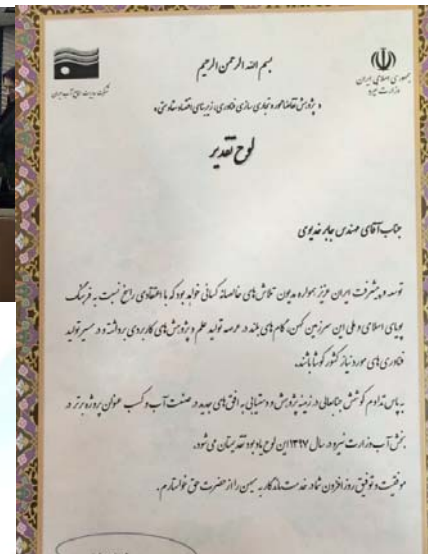 بسم الله الرحمن الرحیم
جمهوری اسلامی ایران
وزارت نیرو
شرکت مدیریت منابع آب ایران
پژوهش تقاضا محور و تجاری سازی فناوری، زیربنای اقتصاد مقاومتی
لوح تقدیر
جناب آقای مهندس جابر خدیوی
توسعه و پیشرفت ایران عزیز همواره مدیون تلاش های خالصانه کسانی خواهد بود که با اعتقادی راسخ نسبت به فرهنگ
پویای اسلامی و ملی این سرزمین کهن، گام های بلند در عرصه تولید علم و پژوهش های کاربردی برداشته و در مسیر تولید
فناوری های مورد نیاز کشور کوشا باشند.
به پاس تداوم کوشش جنابعالی در زمینه پژوهش و دستیابی به افق های جدید در صنعت آب و کسب عنوان پروژه برتر در
بخش آب وزارت نیرو در سال ۱۳۹۷ این لوح یادبود تقدیمتان می شود.
موفقیت و توفیق روز افزون شما در خدمت ماندگار به میهن را از حضرت حق خواستارم.